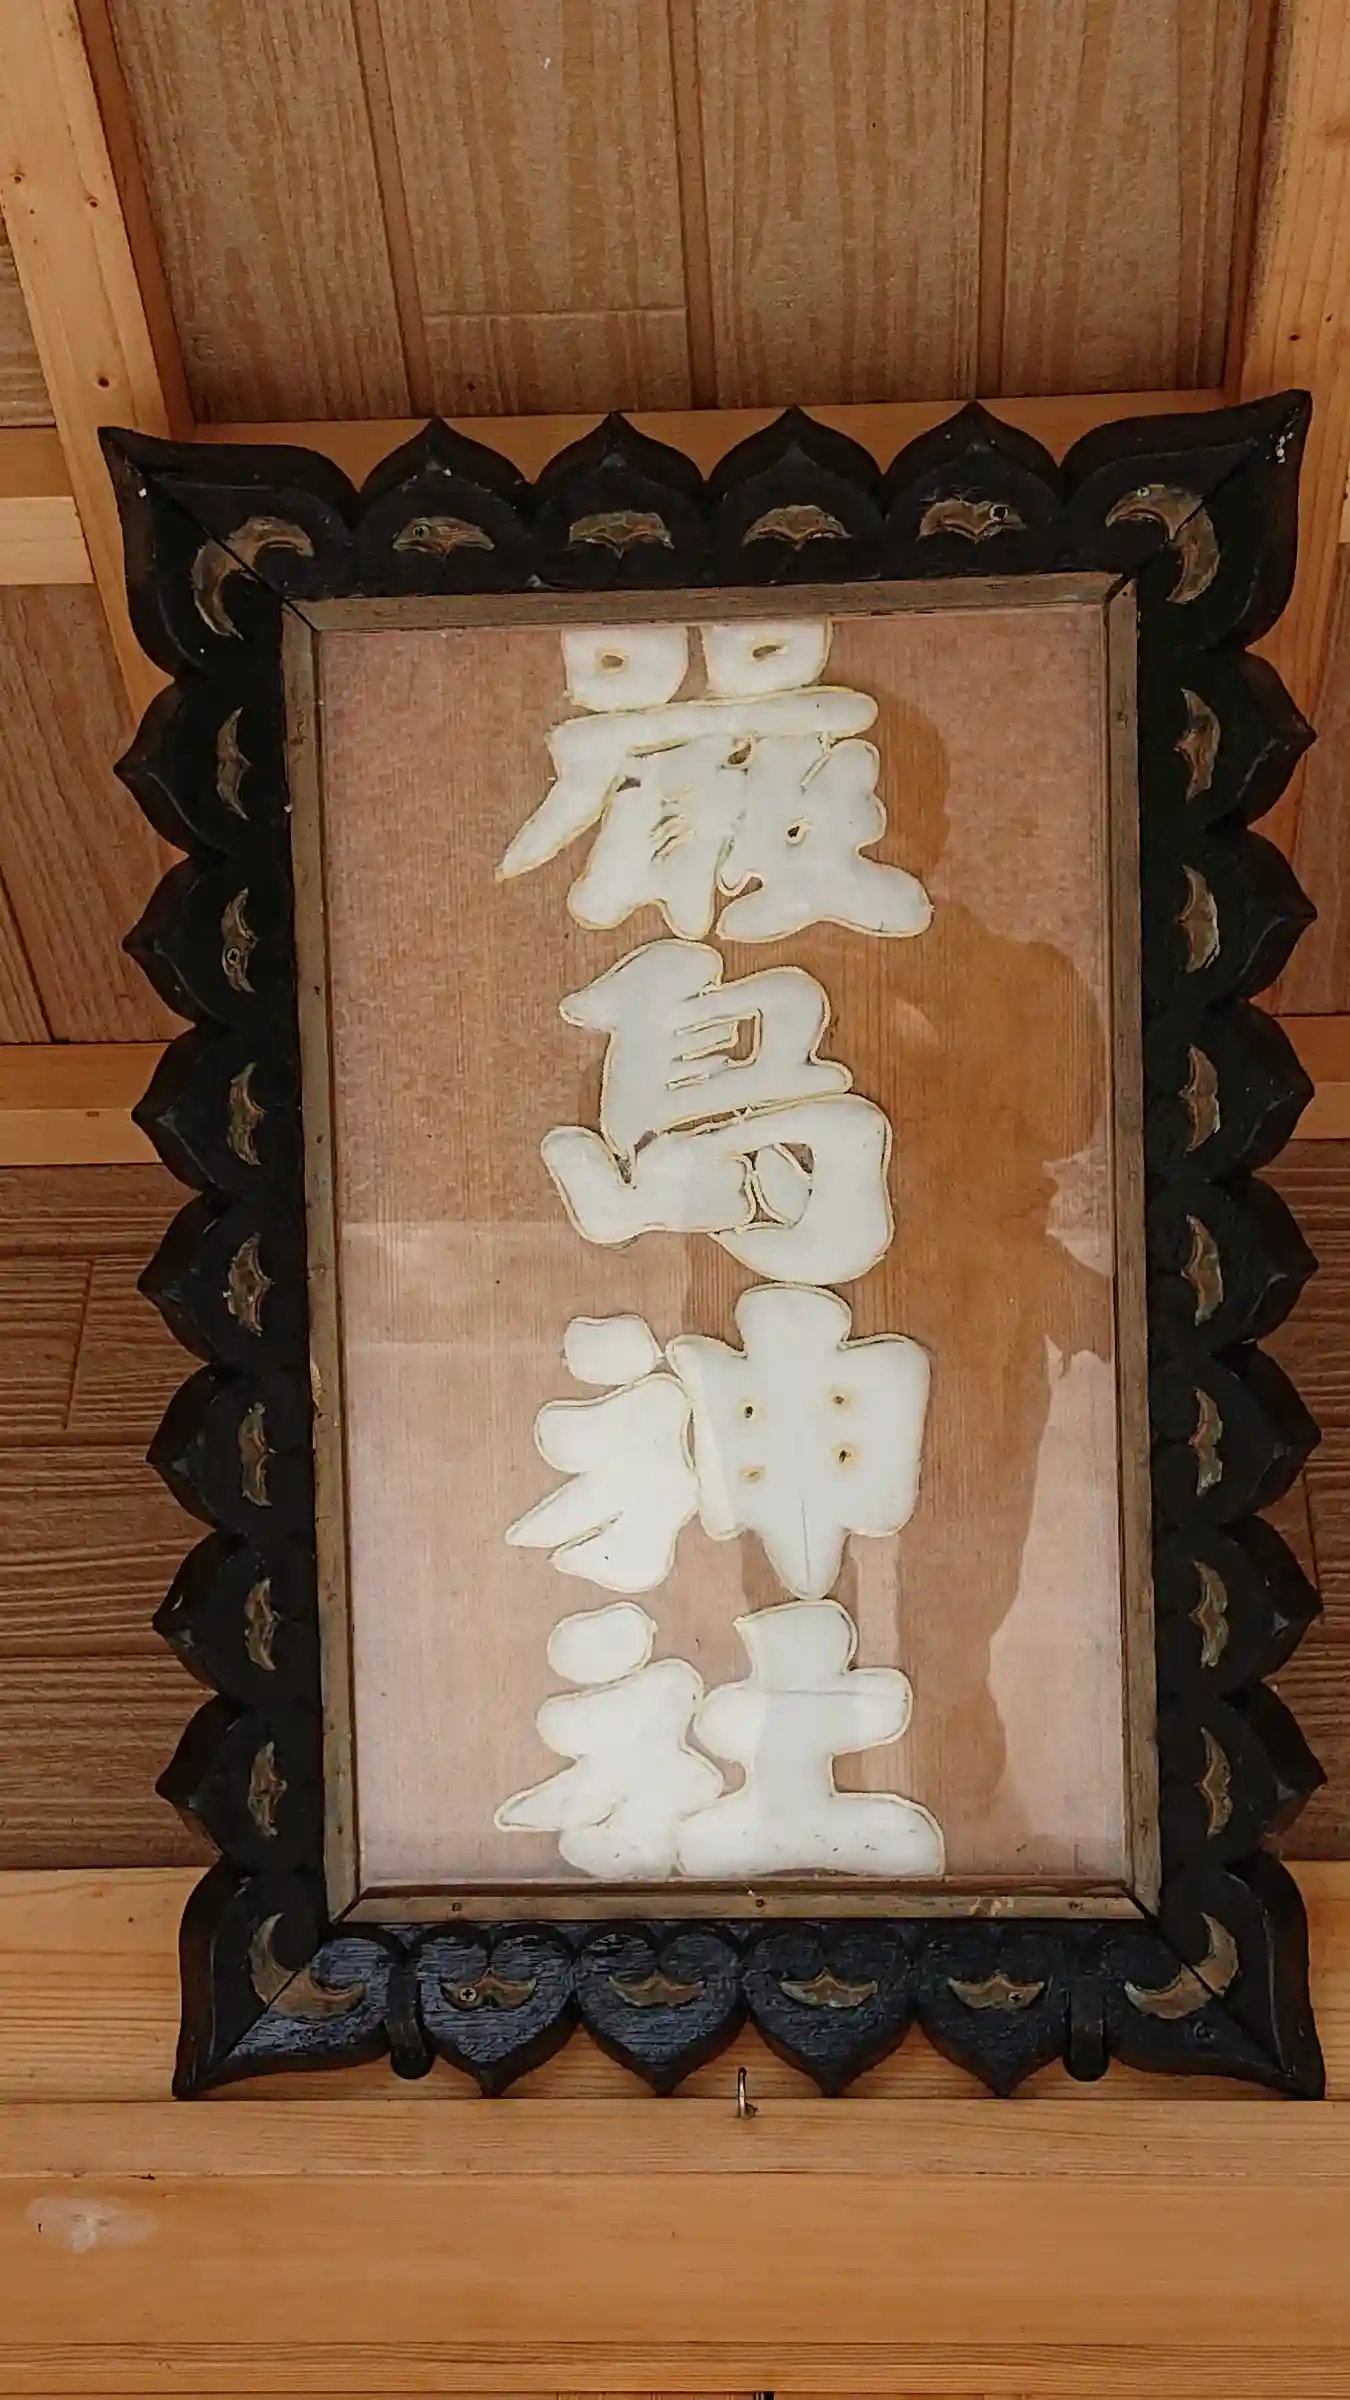 嚴島神社